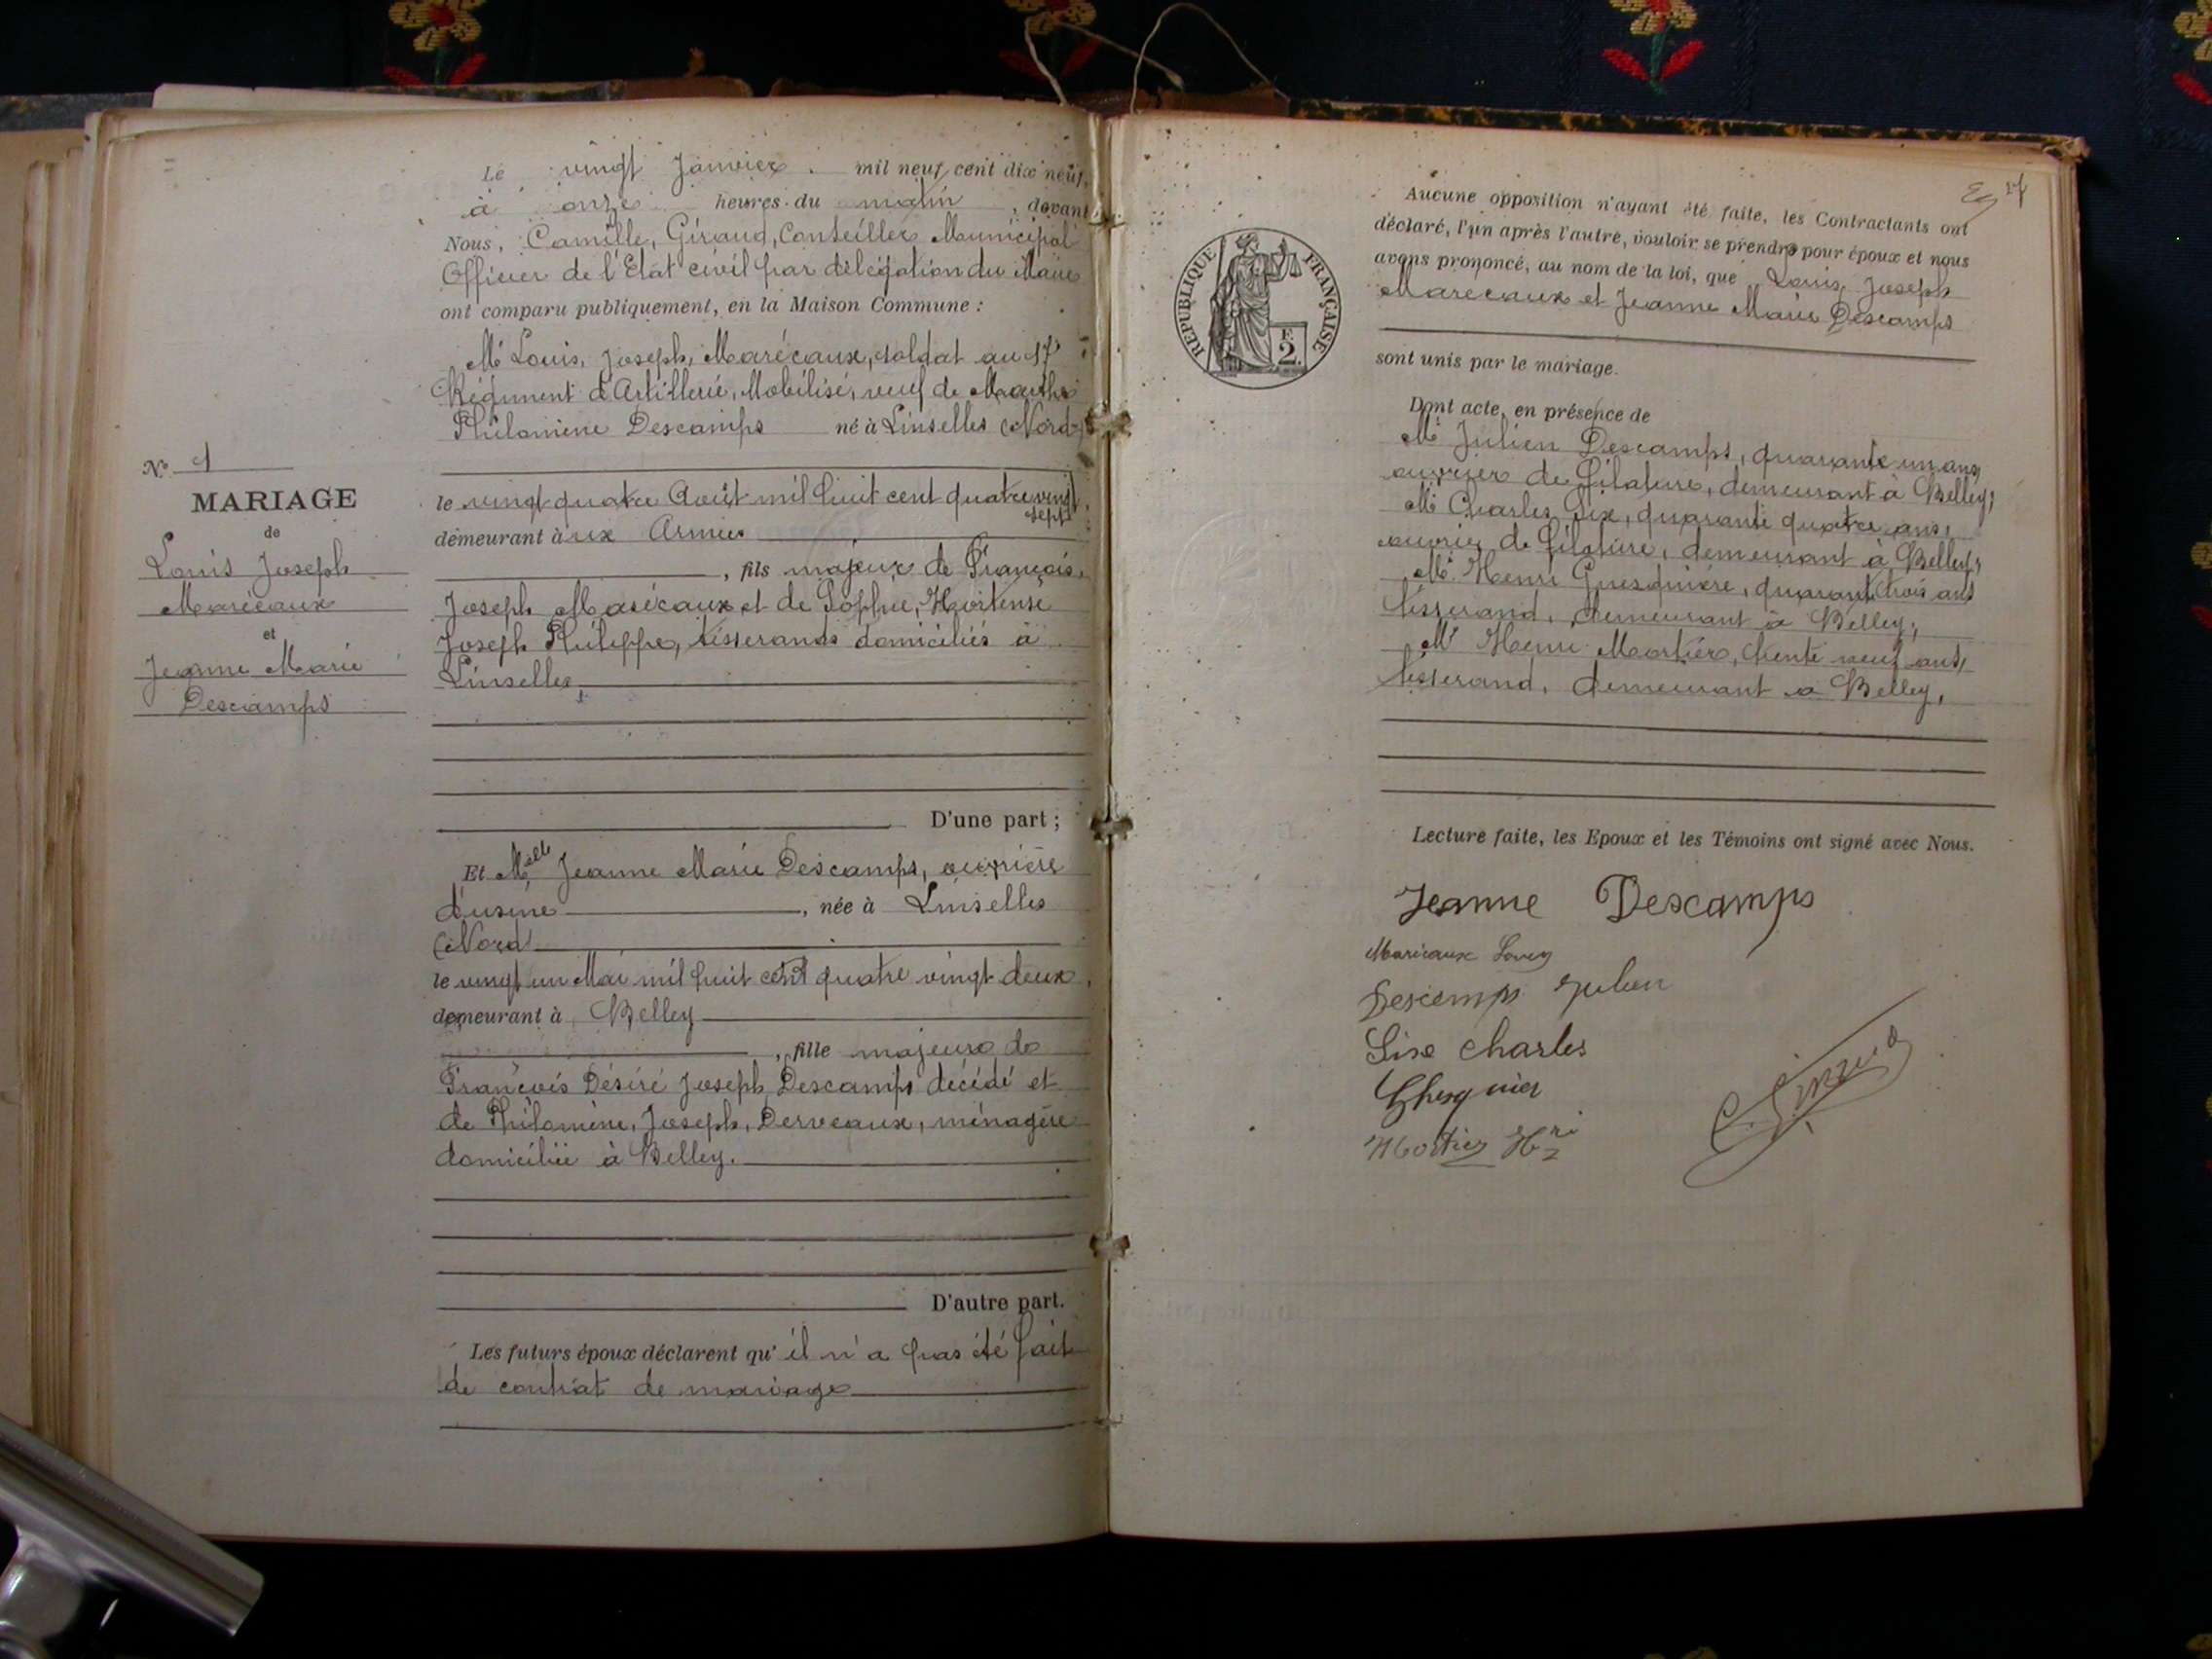 Le vingt Janvier mil neuf cent dix neuf,
à onze heures du matin, devant
Nous, Camille, Giraud, Conseiller Municipal
Officier de l'Etat civil par délégation du Maire
ont comparu publiquement, en la Maison Commune :
Mr Louis, Joseph, Marécaux, soldat au 17e
Régiment d'Artillerie, Mobilisé, veuf de Marthe
Philomène Descamps né à Linselles (Nord)
N° 1
MARIAGE
de
Louis Joseph
Marécaux
et
Jeanne Marie
Descamps
le vingt quatre Août mil huit cent quatre vingt
sept
demeurant à ux Armées
, fils majeur de François,
Joseph Marécaux et de Sophie, Hortense
Joseph Philippe, tisserands domiciliés à
Linselles,
D'une part ;
Et Melle Jeanne Marie Descamps, ouvrière
d'usine, née à Linselles
(Nord)
le vingt un Mai mil huit cent quatre vingt deux,
demeurant à Belley
, fille majeure de
François Désiré Joseph Descamps décédé et
de Philomène, Joseph, Derveaux, ménagère
domiciliée à Belley.
D'autre part.
Les futurs époux déclarent qu'il n'a pas été fait
de contrat de mariage
27
REPUBLIQUE FRANÇAISE
F.
2
Aucune opposition n'ayant été faite, les Contractants ont
déclaré, l'un après l'autre, vouloir se prendre pour époux et nous
avons prononcé, au nom de la loi, que Louis, Joseph
Marecaux et Jeanne Marie Descamps
sont unis par le mariage.
Dont acte, en présence de
Mr Julien Descamps, quarante un ans,
ouvrier de filature, demeurant à Belley,
Mr Charles Six, quarante quatre ans,
ouvrier de filature, demeurant à Belley,
Mr Henri Guesquière, quarante trois ans
tisserand, demeurant à Belley,
Mr Henri Mortier, trente neuf ans,
tisserand, demeurant à Belley,
Lecture faite, les Epoux et les Témoins ont signé avec Nous.
Jeanne Descamps
Marécaux Louis
Descamps Julien
Sise Charles
Ghesquier
Mortier Hri
C. Giraud